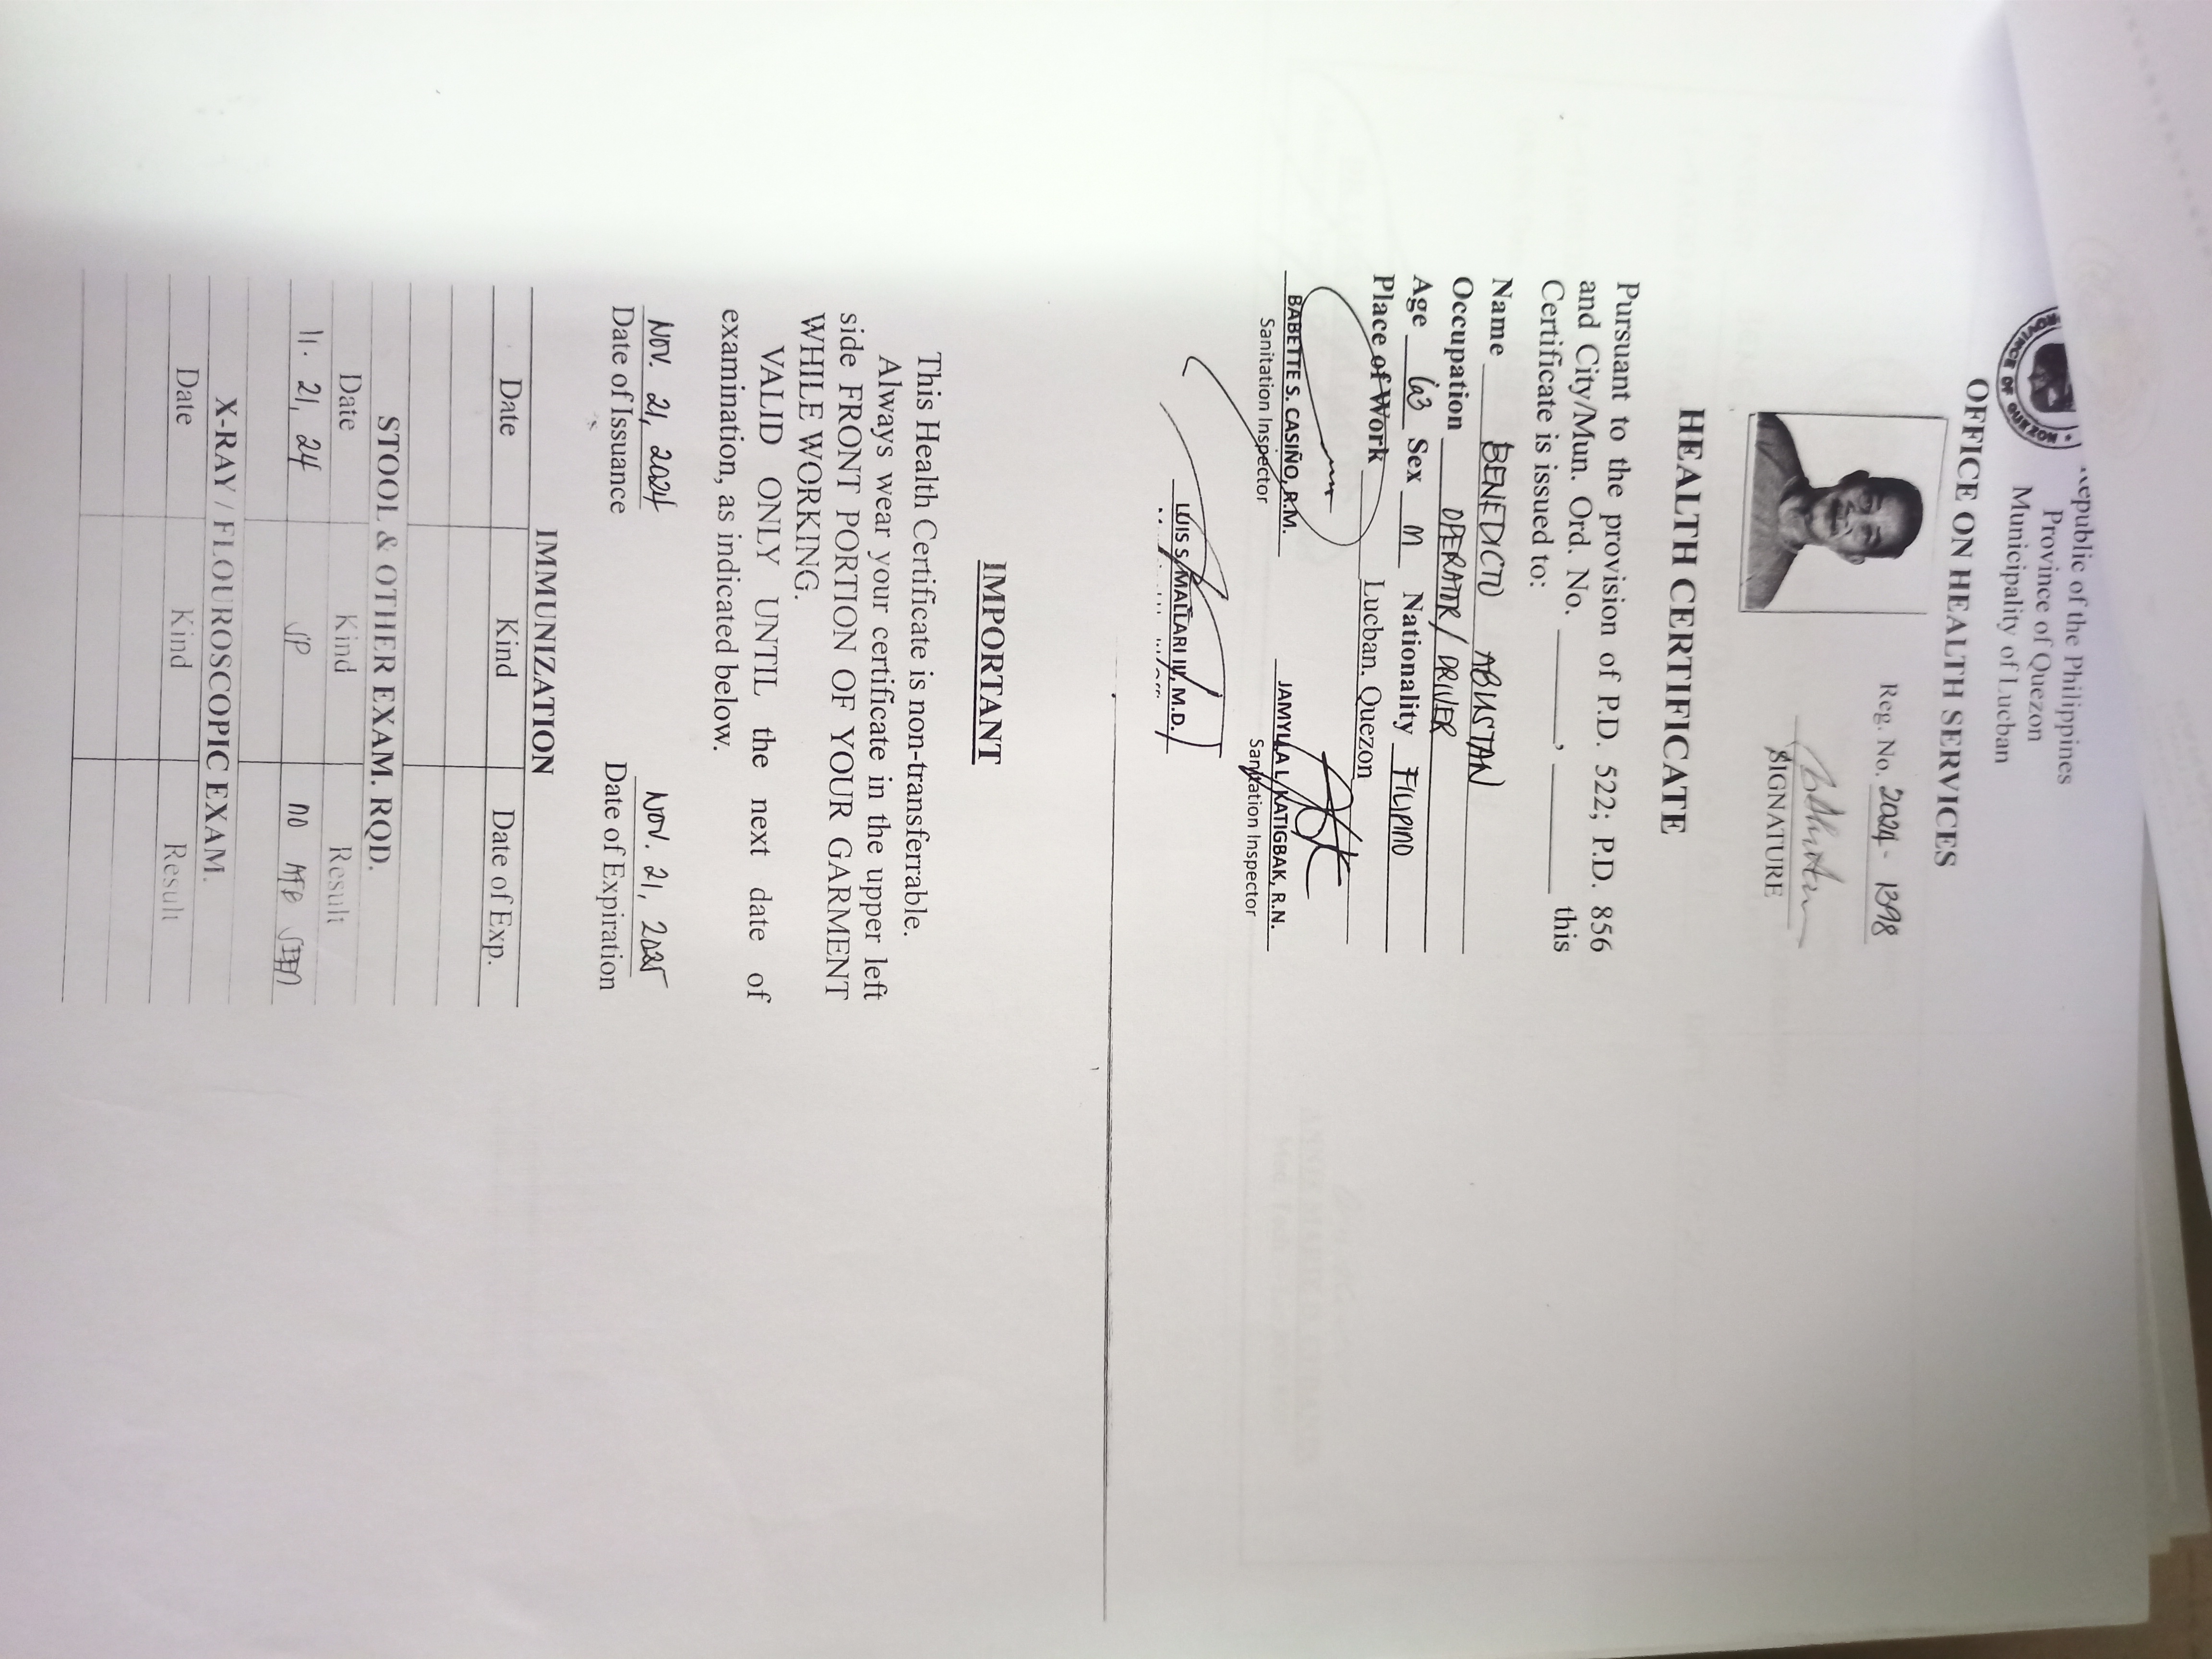 epublic of the Philippines
Province of Quezon
Municipality of Lucban
PROVINCE OF QUEZON
OFFICE ON HEALTH SERVICES
Reg. No. 2024 - 1398
SIGNATURE
HEALTH CERTIFICATE
Pursuant to the provision of P.D. 522; P.D. 856
and City/Mun. Ord. No. ________, ________ this
Certificate is issued to:
Name BENEDICTO ABUSTAN
Occupation OPERATOR / DRIVER
Age 63 Sex M Nationality FILIPINO
Place of Work Lucban, Quezon
BABETTE S. CASIÑO, R.M. JAMYLLA L. KATIGBAK, R.N.
Sanitation Inspector Sanitation Inspector
LUIS S. MALLARI III, M.D.
IMPORTANT
This Health Certificate is non-transferrable.
Always wear your certificate in the upper left
side FRONT PORTION OF YOUR GARMENT
WHILE WORKING.
VALID ONLY UNTIL the next date of
examination, as indicated below.
Nov. 21, 2024 Nov. 21, 2025
Date of Issuance Date of Expiration
IMMUNIZATION
Date Kind Date of Exp.
STOOL & OTHER EXAM. RQD.
Date Kind Result
11. 21, 24 SP NO AFB SEEN
X-RAY / FLOUROSCOPIC EXAM.
Date Kind Result